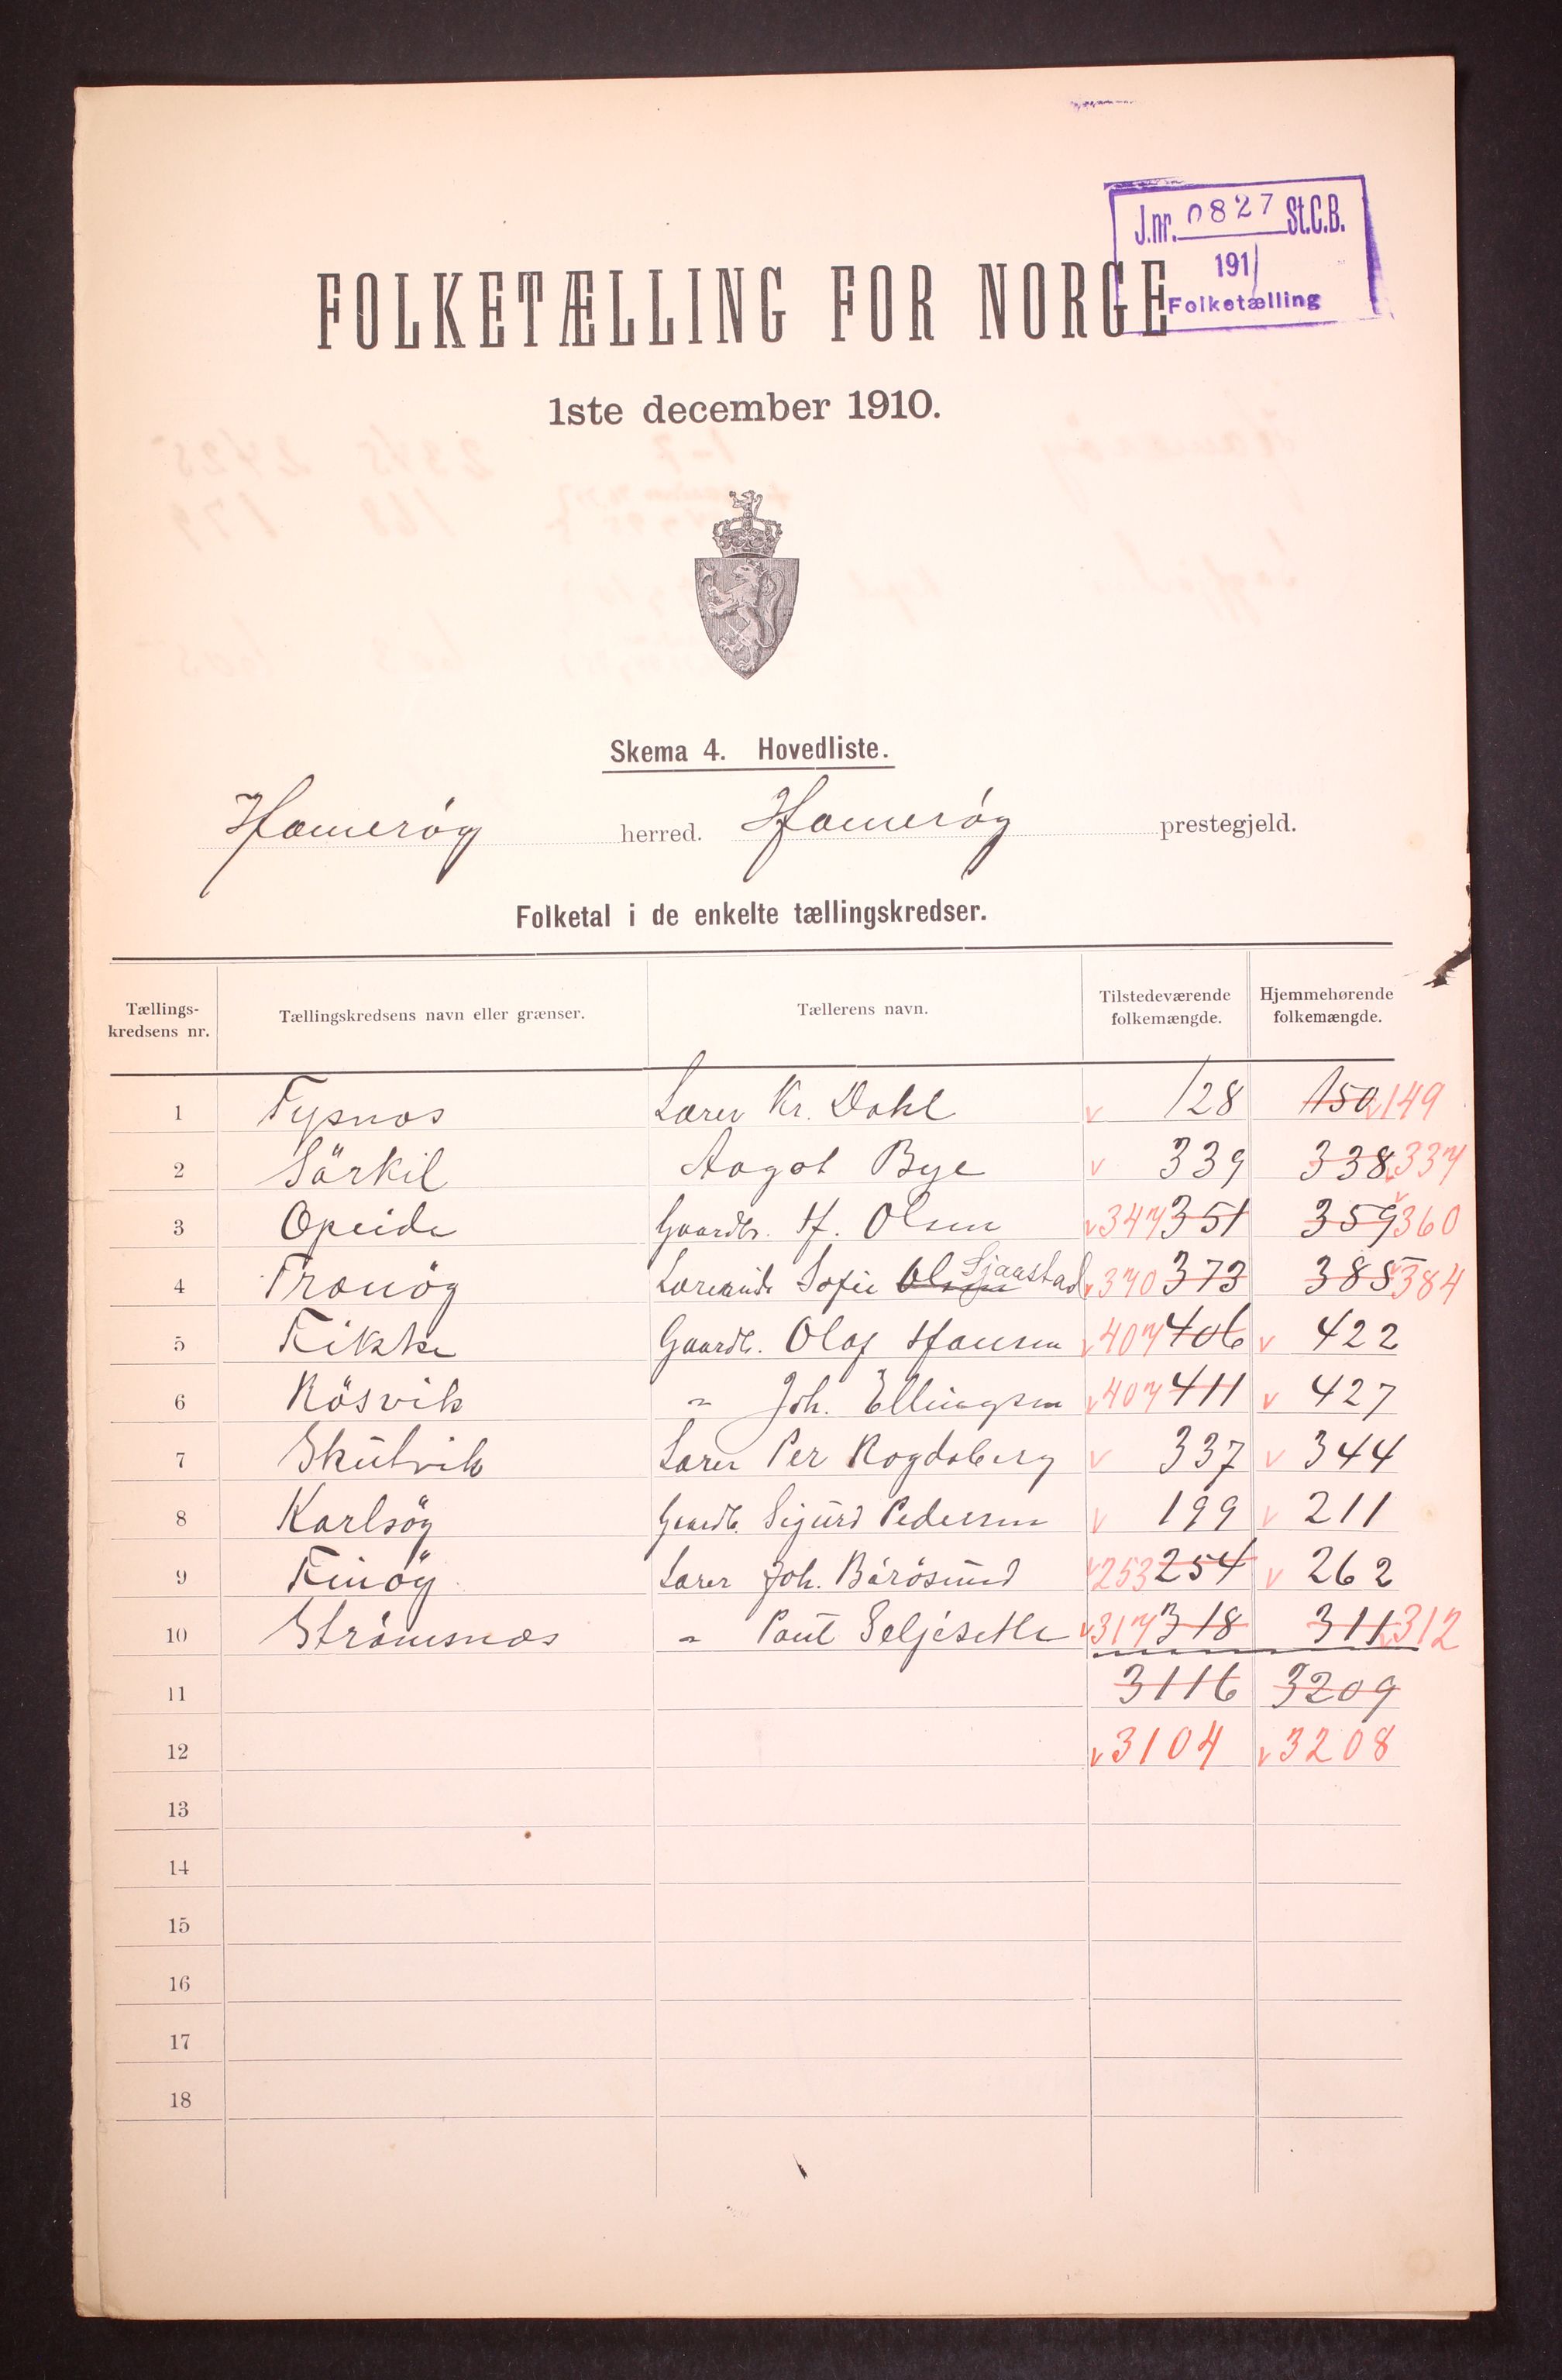 J.nr. 0827 St.C.B.
191
Folketælling
FOLKETÆLLING FOR NORGE
1ste december 1910.
Skema 4. Hovedliste.
Hamerøy herred. Hamerøy prestegjeld.
Folketal i de enkelte tællingskredser.
Tællings-kredsens nr. Tællingskredsens navn eller grænser. Tællerens navn. Tilstedeværende folkemængde. Hjemmehørende folkemængde.
1 Tysnes Lærer Kr. Dahl v 128 150 v 149
2 Sörkil Aagot Bye v 339 338 v 337
3 Opeide Gaardb. H. Olsen v 347 351 359 v 360
4 Tranöy Lærerinde Sofie Olsen Sjaastad v 370 373 385 v 384
5 Fikke Gaardb. Olaf Hansen v 407 406 v 422
6 Rösvik " Joh. Ellingsen v 407 411 v 427
7 Skutvik Lærer Per Rogdaberg v 337 v 344
8 Karlsöy Gaardb. Sigurd Pedersen v 199 v 211
9 Finöy Lærer Joh. Bárösund v 253 254 v 262
10 Strömsnes " Paul Seljesetle v 317 318 311 v 312
11 3116 3209
12 v 3104 v 3208
13
14
15
16
17
18